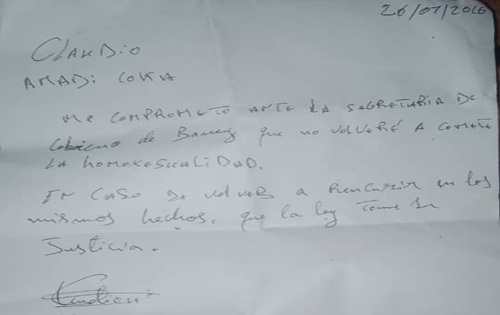 26/01/2026
CLAUDIO
AMADI COTA
ME COMPROMETO ANTE LA SEGRETARIA DE
Gobierno de Baney que no VOLVERÉ A COMETE
LA HOMOXESUALIDAD.
EN CASO DE VOLVER A Reincurir en los
mismos hechos, que la ley tome su
Justicia.